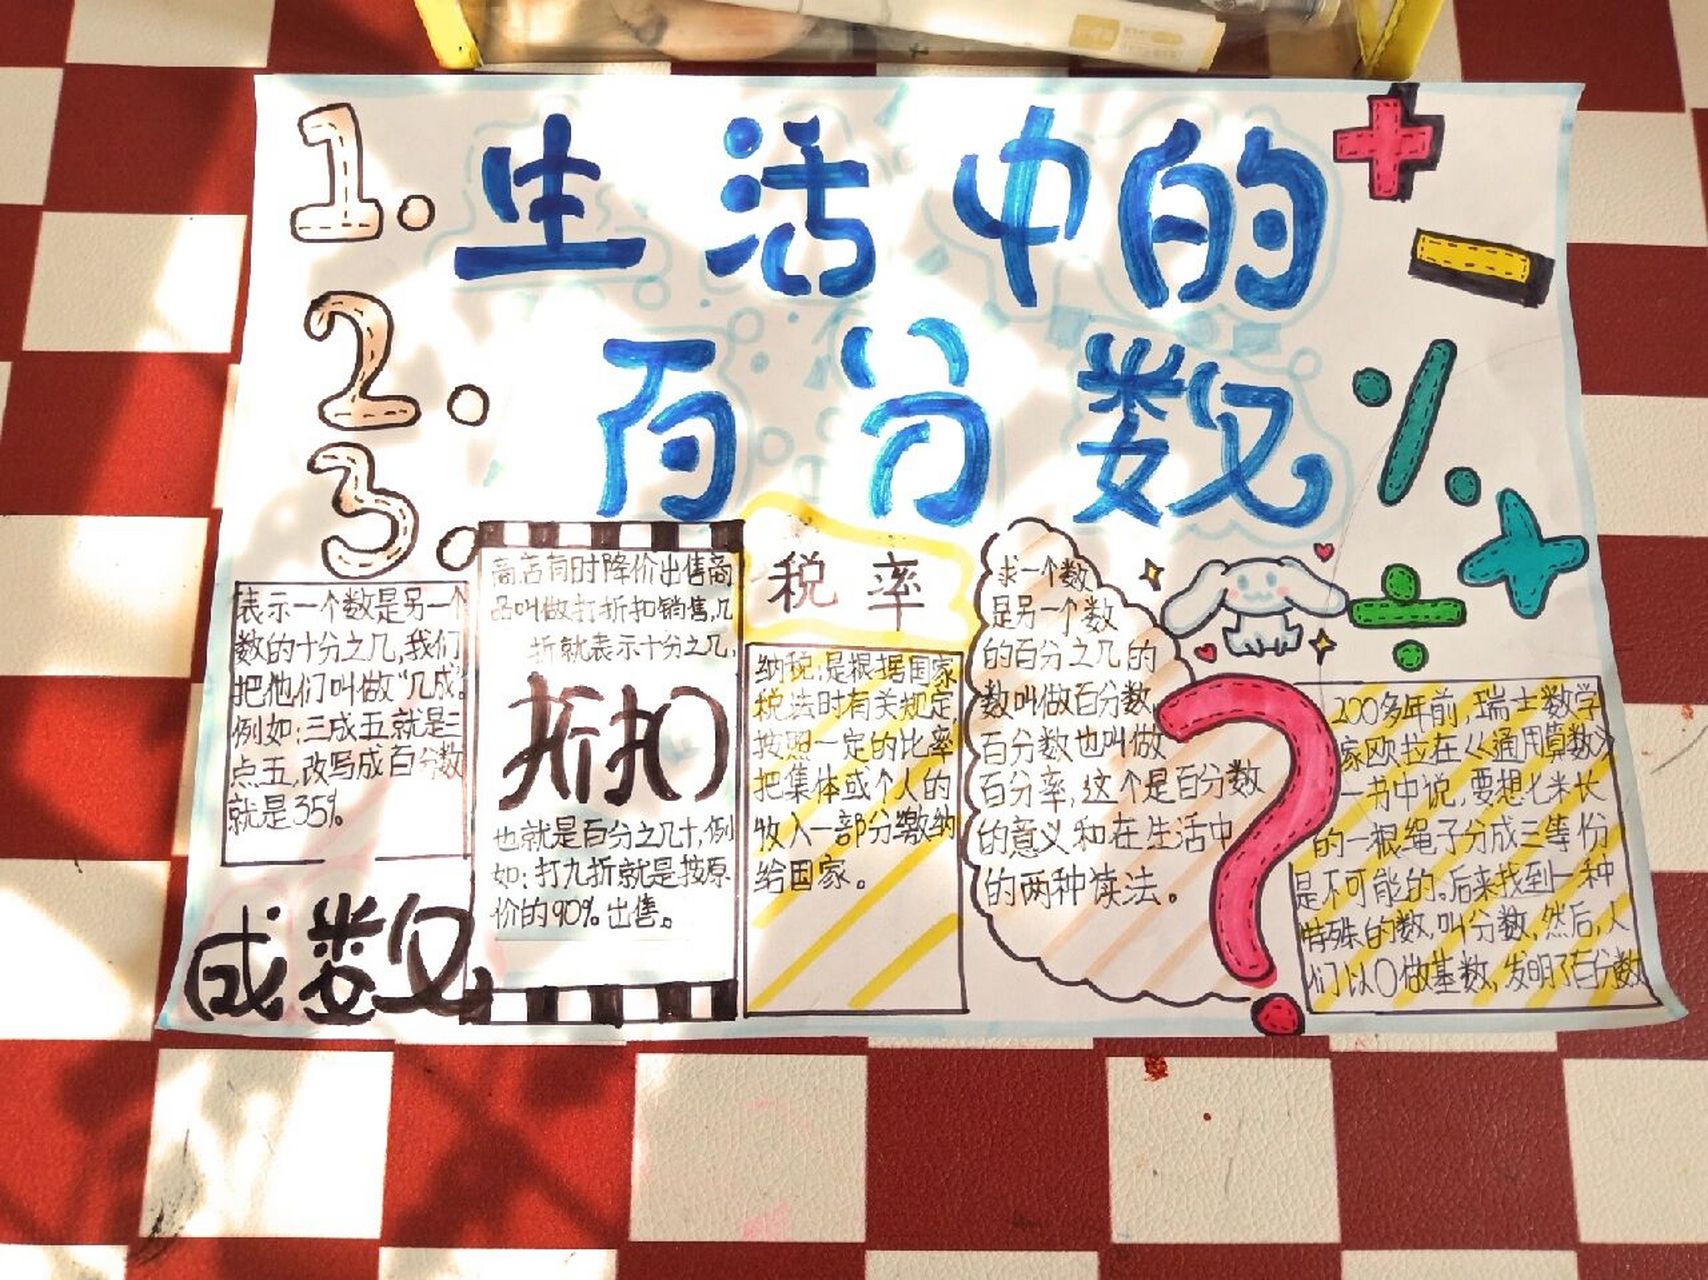 1.
生活中的
2.
百分数
3.
表示一个数是另一个
数的十分之几,我们
把他们叫做“几成”。
例如:三成五就是三
点五,改写成百分数
就是35%。
成数
商店有时降价出售商
品叫做打折扣销售,几
折就表示十分之几,
折扣
也就是百分之几十,例
如:打九折就是按原
价的90%出售。
税率
纳税:是根据国家
税法时有关规定,
按照一定的比率
把集体或个人的
收入一部分缴纳
给国家。
求一个数
是另一个数
的百分之几的
数叫做百分数,
百分数也叫做
百分率,这个是百分数
的意义和在生活中
的两种读法。
?
200多年前,瑞士数学
家欧拉在《通用算数》
一书中说,要想七米长
的一根绳子分成三等份
是不可能的。后来找到一种
特殊的数,叫分数,然后,人
们以〇做基数,发明了百分数
+
-
%
+
÷